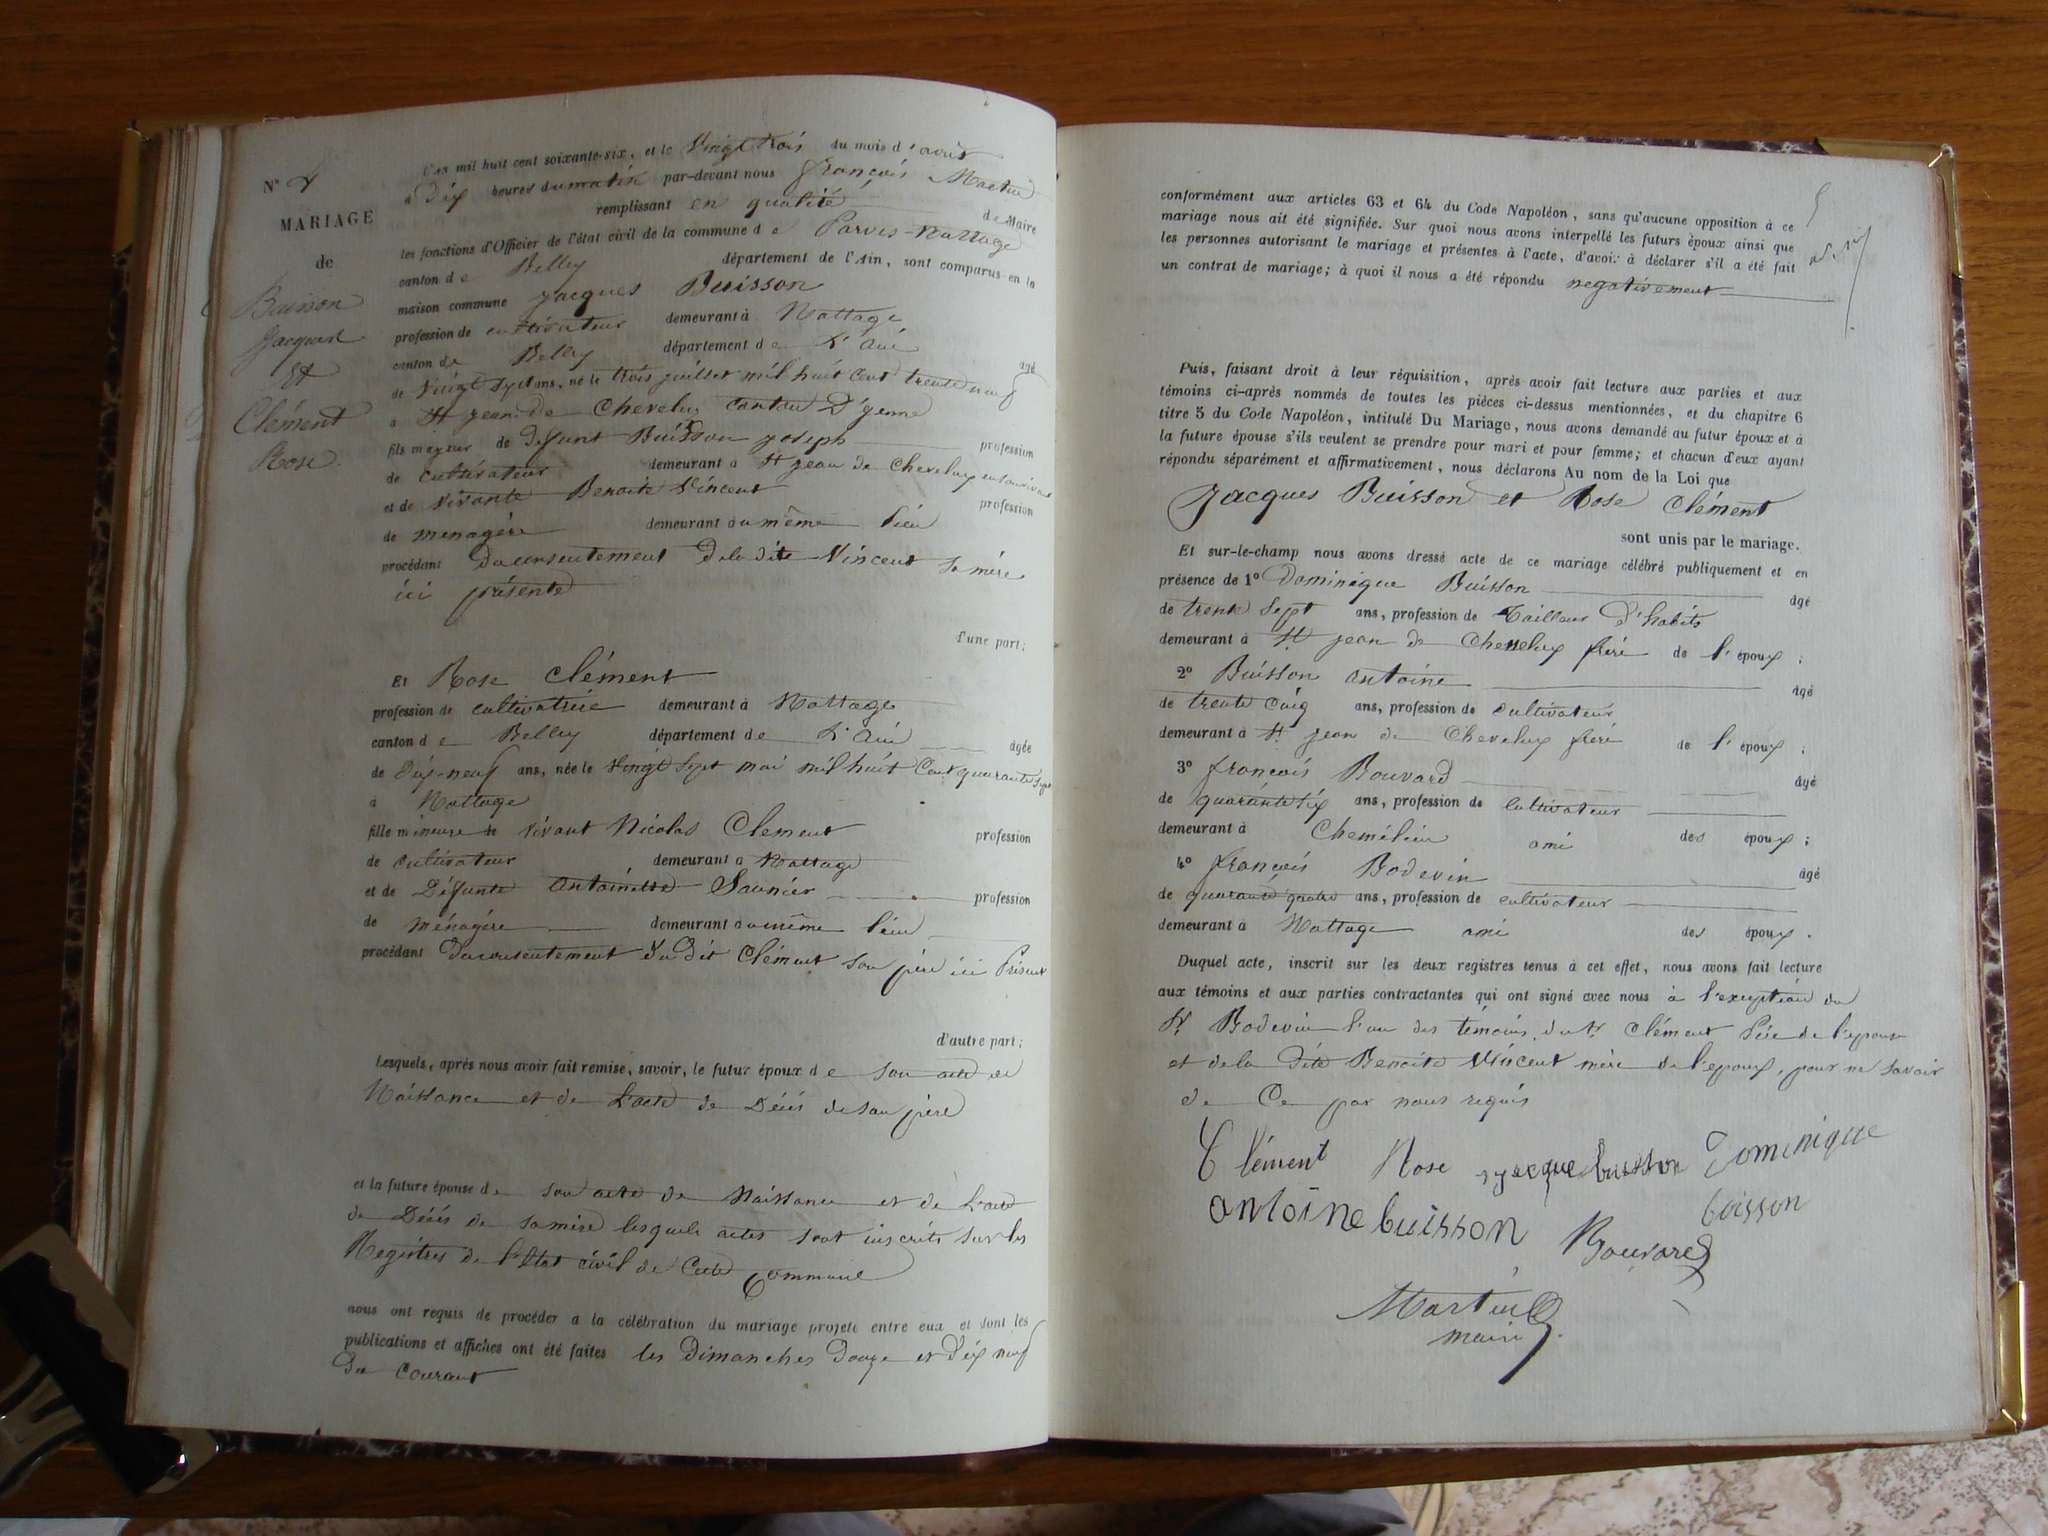 N°
MARIAGE
de
Buisson
Jacques
Et
Clément
Rose
L'an mil huit cent soixante-six, et le Vingt trois du mois d'avril
à Dix heures du matin par-devant nous françois Martin
remplissant en qualité de Maire
les fonctions d'Officier de l'état civil de la commune de Parves-Nattage
canton de Belley département de l'Ain, sont comparus en la
maison commune Jacques Buisson
profession de cultivateur demeurant à Nattage
canton de Belley département de L'Ain agé
de Vingt Sept ans, né le trois juillet mil huit Cent trente neuf
à St jean de Chevelux canton D'yenne
fils majeur de Défunt Buisson joseph profession
de cultivateur demeurant à St jean de Chevelux en son vivant
et de Vivante Benoite Vincent profession
de menagère demeurant au même lieu
procédant Du consentement De la dite Vincent Sa mère
ici présente
d'une part;
Et Rose Clément
profession de cultivatrice demeurant à Nattage
canton de Belley département de L'Ain âgée
de Dix-neuf ans, née le Vingt Sept mai mil huit Cent quarante Sept
à Nattage
fille mineure de Vivant Nicolas Clement profession
de cultivateur demeurant à Nattage
et de Défunte Antoinette Saunier profession
de ménagère demeurant au même lieu
procédant Du consentement Du Dit Clément Son père ici Présent
d'autre part;
Lesquels, après nous avoir fait remise, savoir, le futur époux de Son acte de
Naissance et de L'acte de Décès de Son père
et la future épouse de Son acte de Naissance et de L'acte
de Décès de Sa mère lesquels actes Sont inscrits Sur les
Registres de l'Etat civil de Cette Commune
nous ont requis de procéder à la célébration du mariage projeté entre eux et dont les
publications et affiches ont été faites les Dimanches Douze et Dix neuf
Du Courant
conformément aux articles 63 et 64 du Code Napoléon, sans qu'aucune opposition à ce
mariage nous ait été signifiée. Sur quoi nous avons interpellé les futurs époux ainsi que
les personnes autorisant le mariage et présentes à l'acte, d'avoir à déclarer s'il a été fait
un contrat de mariage; à quoi il nous a été répondu negativement
Puis, faisant droit à leur réquisition, après avoir fait lecture aux parties et aux
témoins ci-après nommés de toutes les pièces ci-dessus mentionnées, et du chapitre 6
titre 5 du Code Napoléon, intitulé Du Mariage, nous avons demandé au futur époux et à
la future épouse s'ils veulent se prendre pour mari et pour femme; et chacun d'eux ayant
répondu séparément et affirmativement, nous déclarons Au nom de la Loi que
Jacques Buisson et Rose Clément
sont unis par le mariage.
Et sur-le-champ nous avons dressé acte de ce mariage célébré publiquement et en
présence de 1° Dominique Buisson âgé
de trente Sept ans, profession de Tailleur D'habits
demeurant à St jean de Chevelux frère de l'époux;
2° Buisson antoine âgé
de trente Cinq ans, profession de cultivateur
demeurant à St jean de Chevelux frère de l'époux;
3° françois Bouvard âgé
de quarante Six ans, profession de cultivateur
demeurant à Chemilieu ami des époux;
4° françois Bodevin âgé
de quarante quatre ans, profession de cultivateur
demeurant à Nattage ami des époux.
Duquel acte, inscrit sur les deux registres tenus à cet effet, nous avons fait lecture
aux témoins et aux parties contractantes qui ont signé avec nous à l'exception du
Sr Bodevin l'un des témoins du Sr Clément Père de l'épouse
et de la Dite Benoite Vincent mère de l'époux, pour ne Savoir
de Ce par nous requis
Clément Rose jacque buisson Dominique
antoine buisson Bouvard boisson
Martin
maire